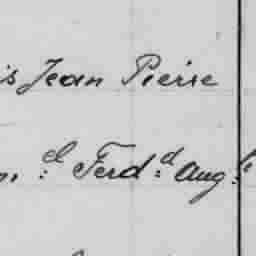 is Jean Pierre
el Ferd.d Aug.te